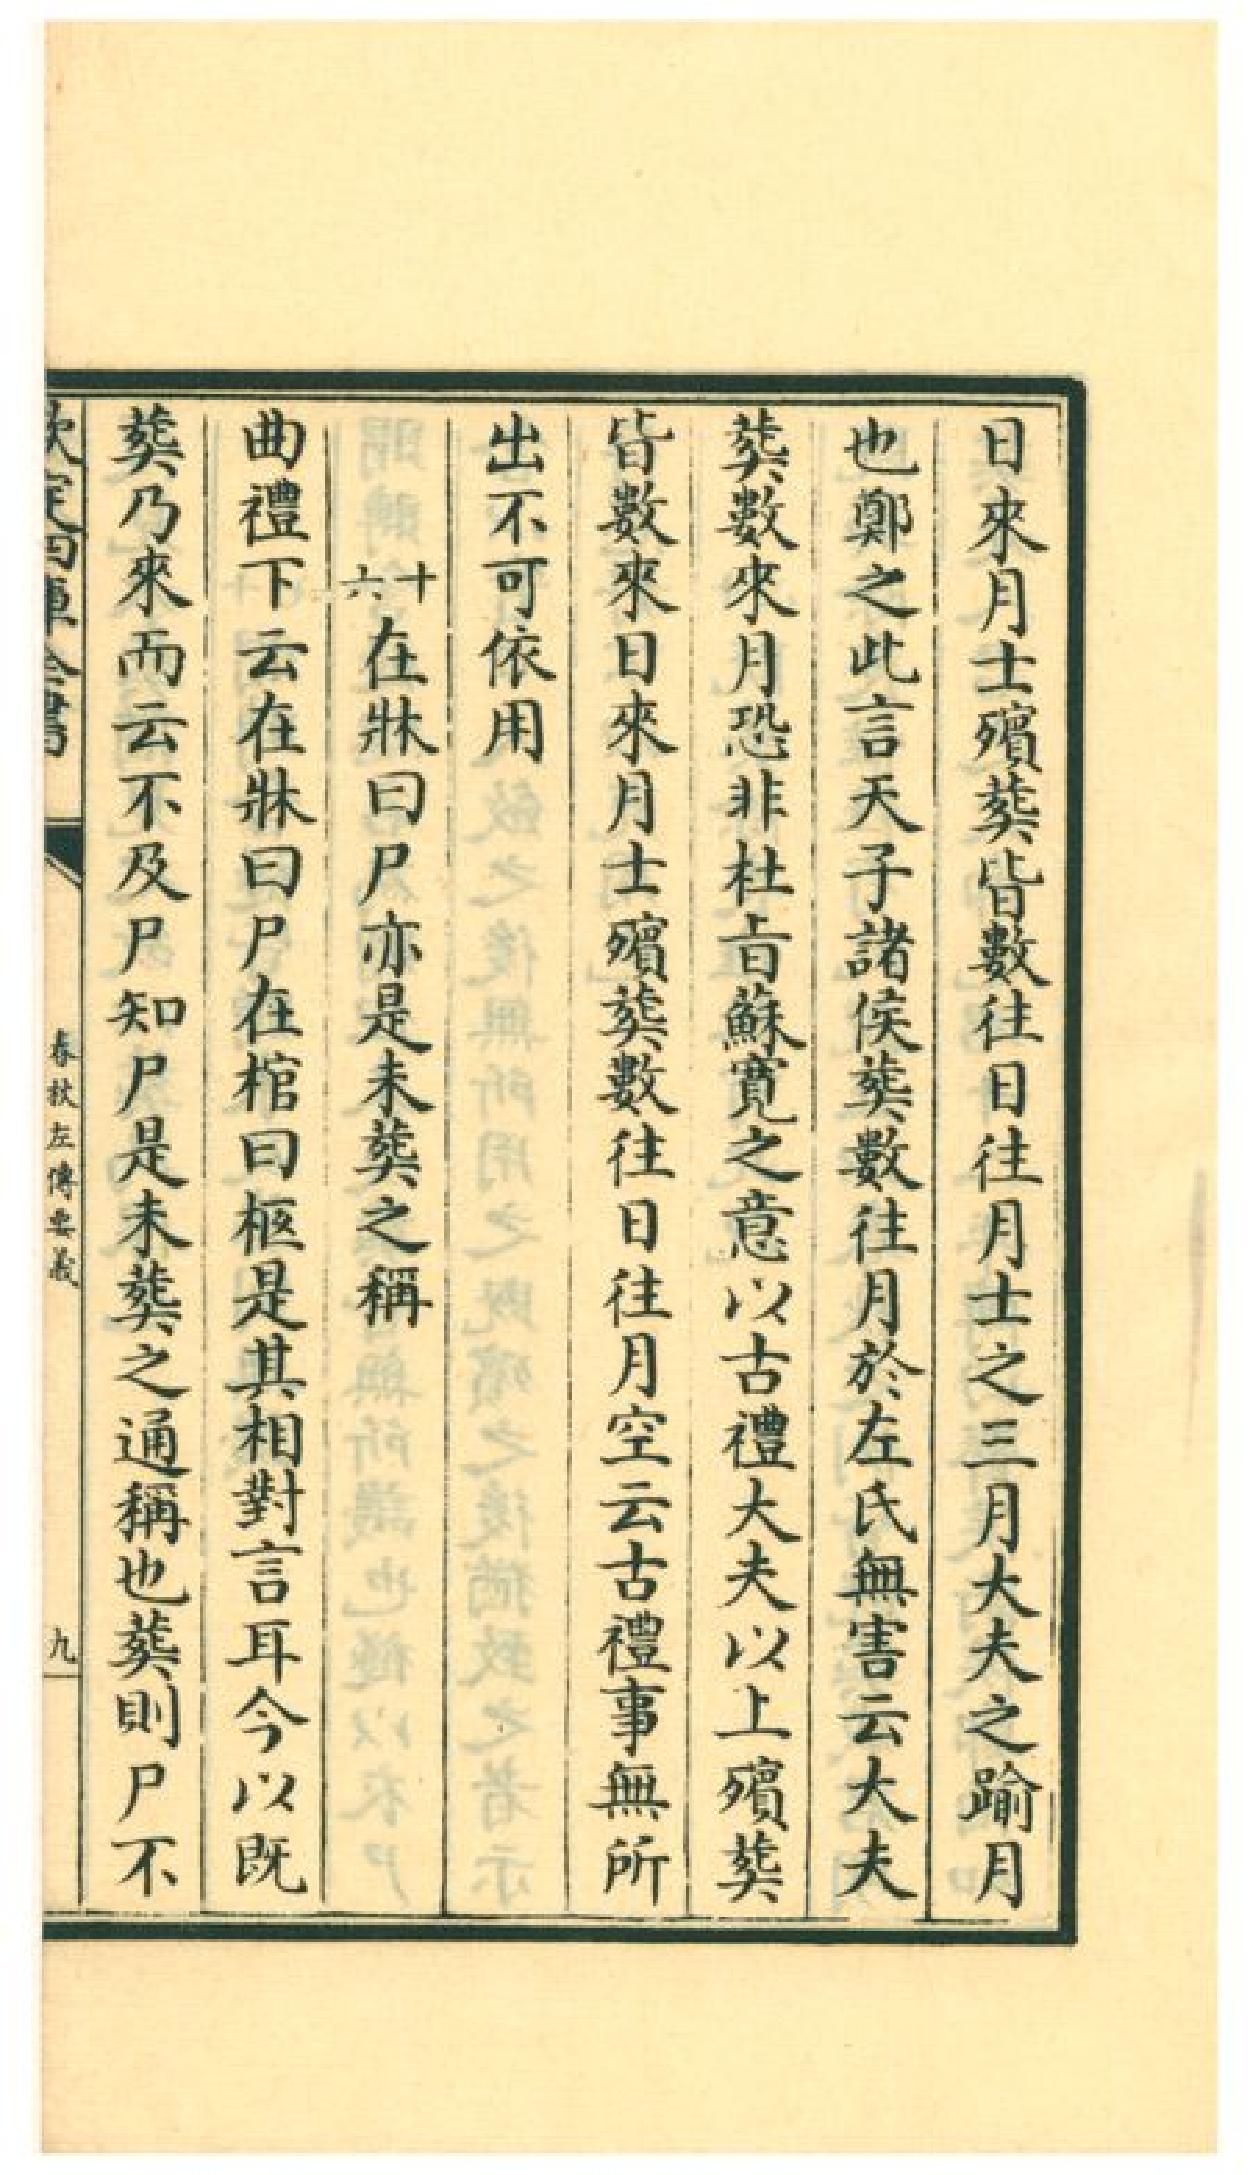 日來月士殯葬皆數往日往月士之三月大夫之踰月
也鄭之此言天子諸侯葬數往月於左氏無害云大夫
葬數來月恐非杜旨蘇寛之意以古禮大夫以上殯葬
皆數來日來月士殯葬數往日往月空云古禮事無所
出不可依用
十六在牀曰尸亦是未葬之稱
曲禮下云在牀曰尸在棺曰柩是其相對言耳今以既
葬乃來而云不及尸知尸是未葬之通稱也葬則尸不
欽定四庫全書
春秋左傳要義
九